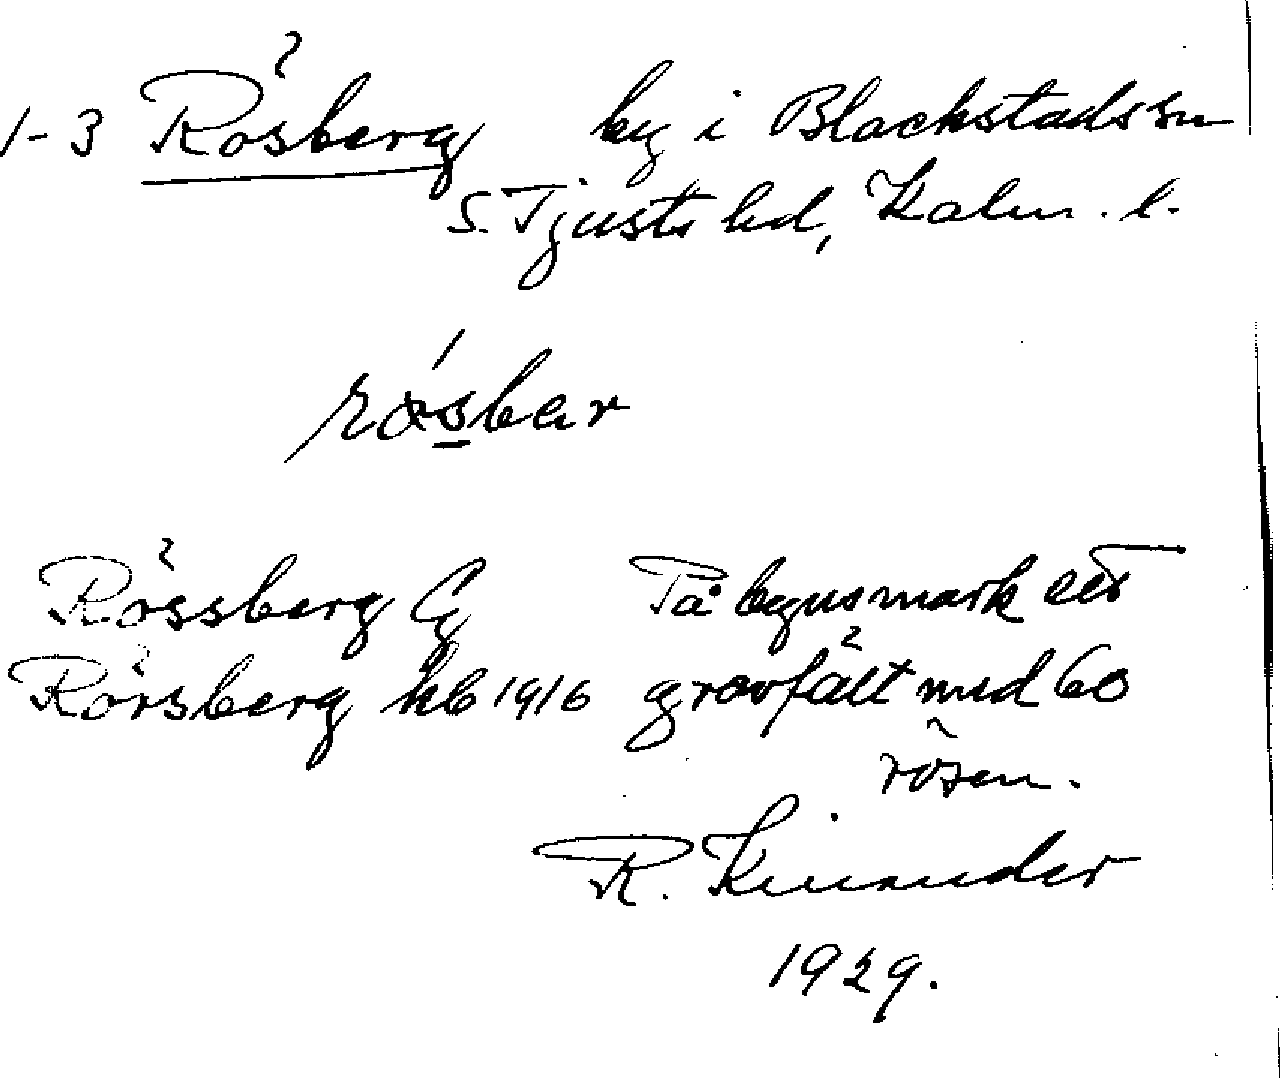 1-3 Rösberg by i Blackstads sn
S. Tjusts hd, Kalm. l.
rö́sbar
Rössberg Cg På byns mark ett
Rörsberg kb 1916 gravfält med 60
rösen.
R. Kinander
1929.